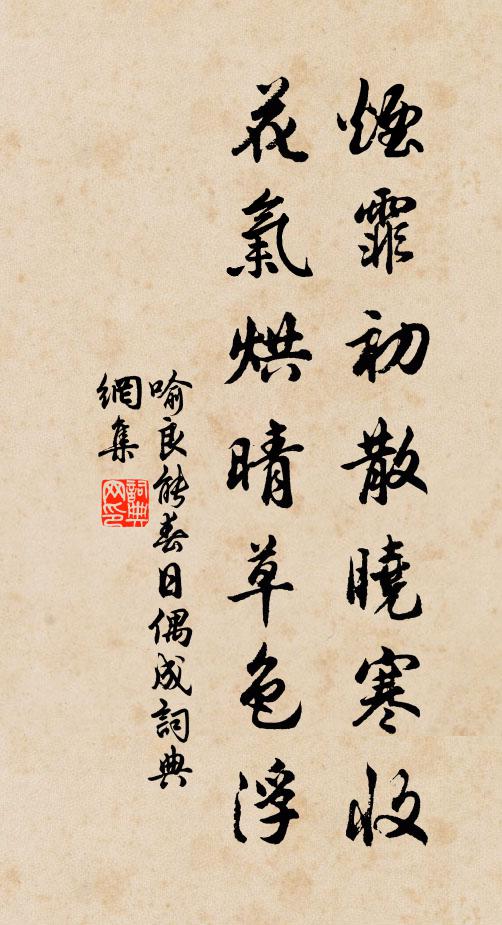 煙霏初散曉寒收
花氣烘晴草色浮
喻良能春日偶成詞典
網集
詞典
网印